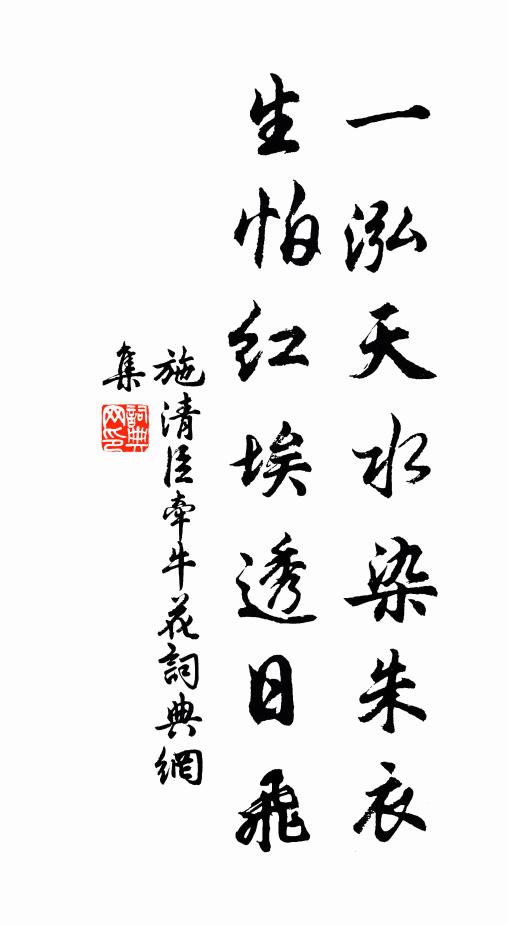 一泓天水染朱衣
生怕红埃透日飛
施清臣牽牛花詞典網
集
詞典
网印